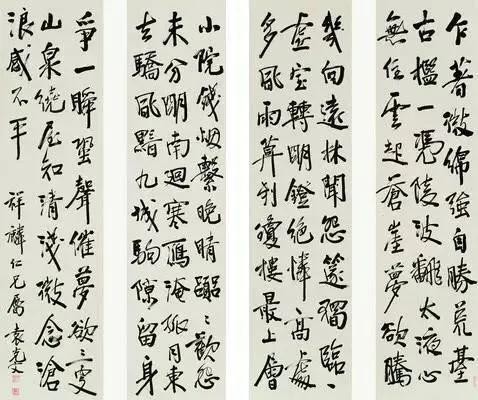 乍著微綿強自勝荒臺
古檻一憑陵波翻太液心
無住雲起蒼崖夢欲騰
幾向遠林聞怨篴獨臨
虛室轉明鐙絕憐高處
多風雨算到瓊樓最上層
小院餘煙繫晚晴囂々歡怨
未分明南迴寒鴈淹孤月東
去驕風黯九城駒隙留身
爭一瞬蛩聲催夢欲三更
山泉繞屋知清淺微念滄
浪感不平 祥麟仁兄屬 袁克文